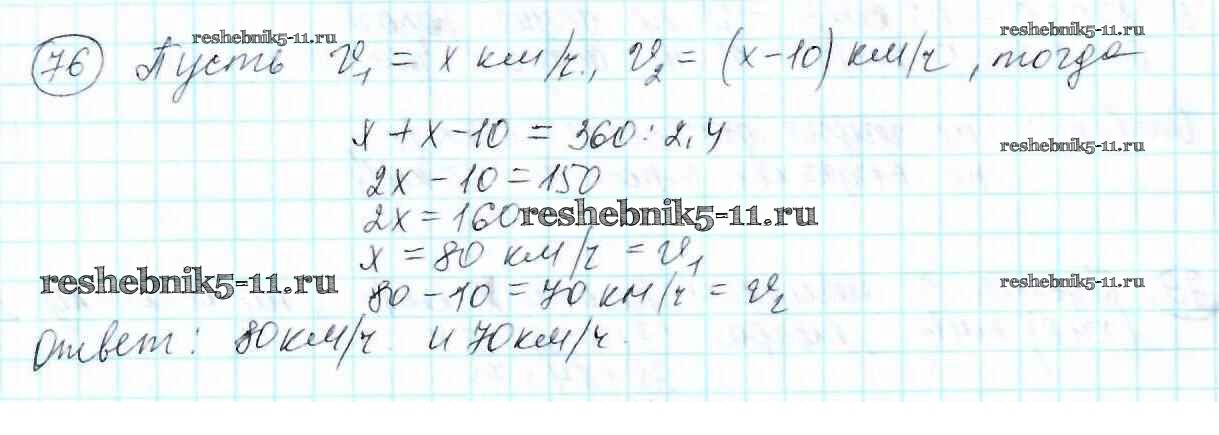 reshebnik5-11.ru reshebnik5-11.ru
76 Пусть V₁ = x км/ч., V₂ = (x-10) км/ч, тогда
x + x - 10 = 360 : 2,4
reshebnik5-11.ru
2x - 10 = 150
2x = 160 reshebnik5-11.ru
x = 80 км/ч = V₁
reshebnik5-11.ru 80 - 10 = 70 км/ч = V₂ reshebnik5-11.ru
Ответ: 80 км/ч. и 70 км/ч.